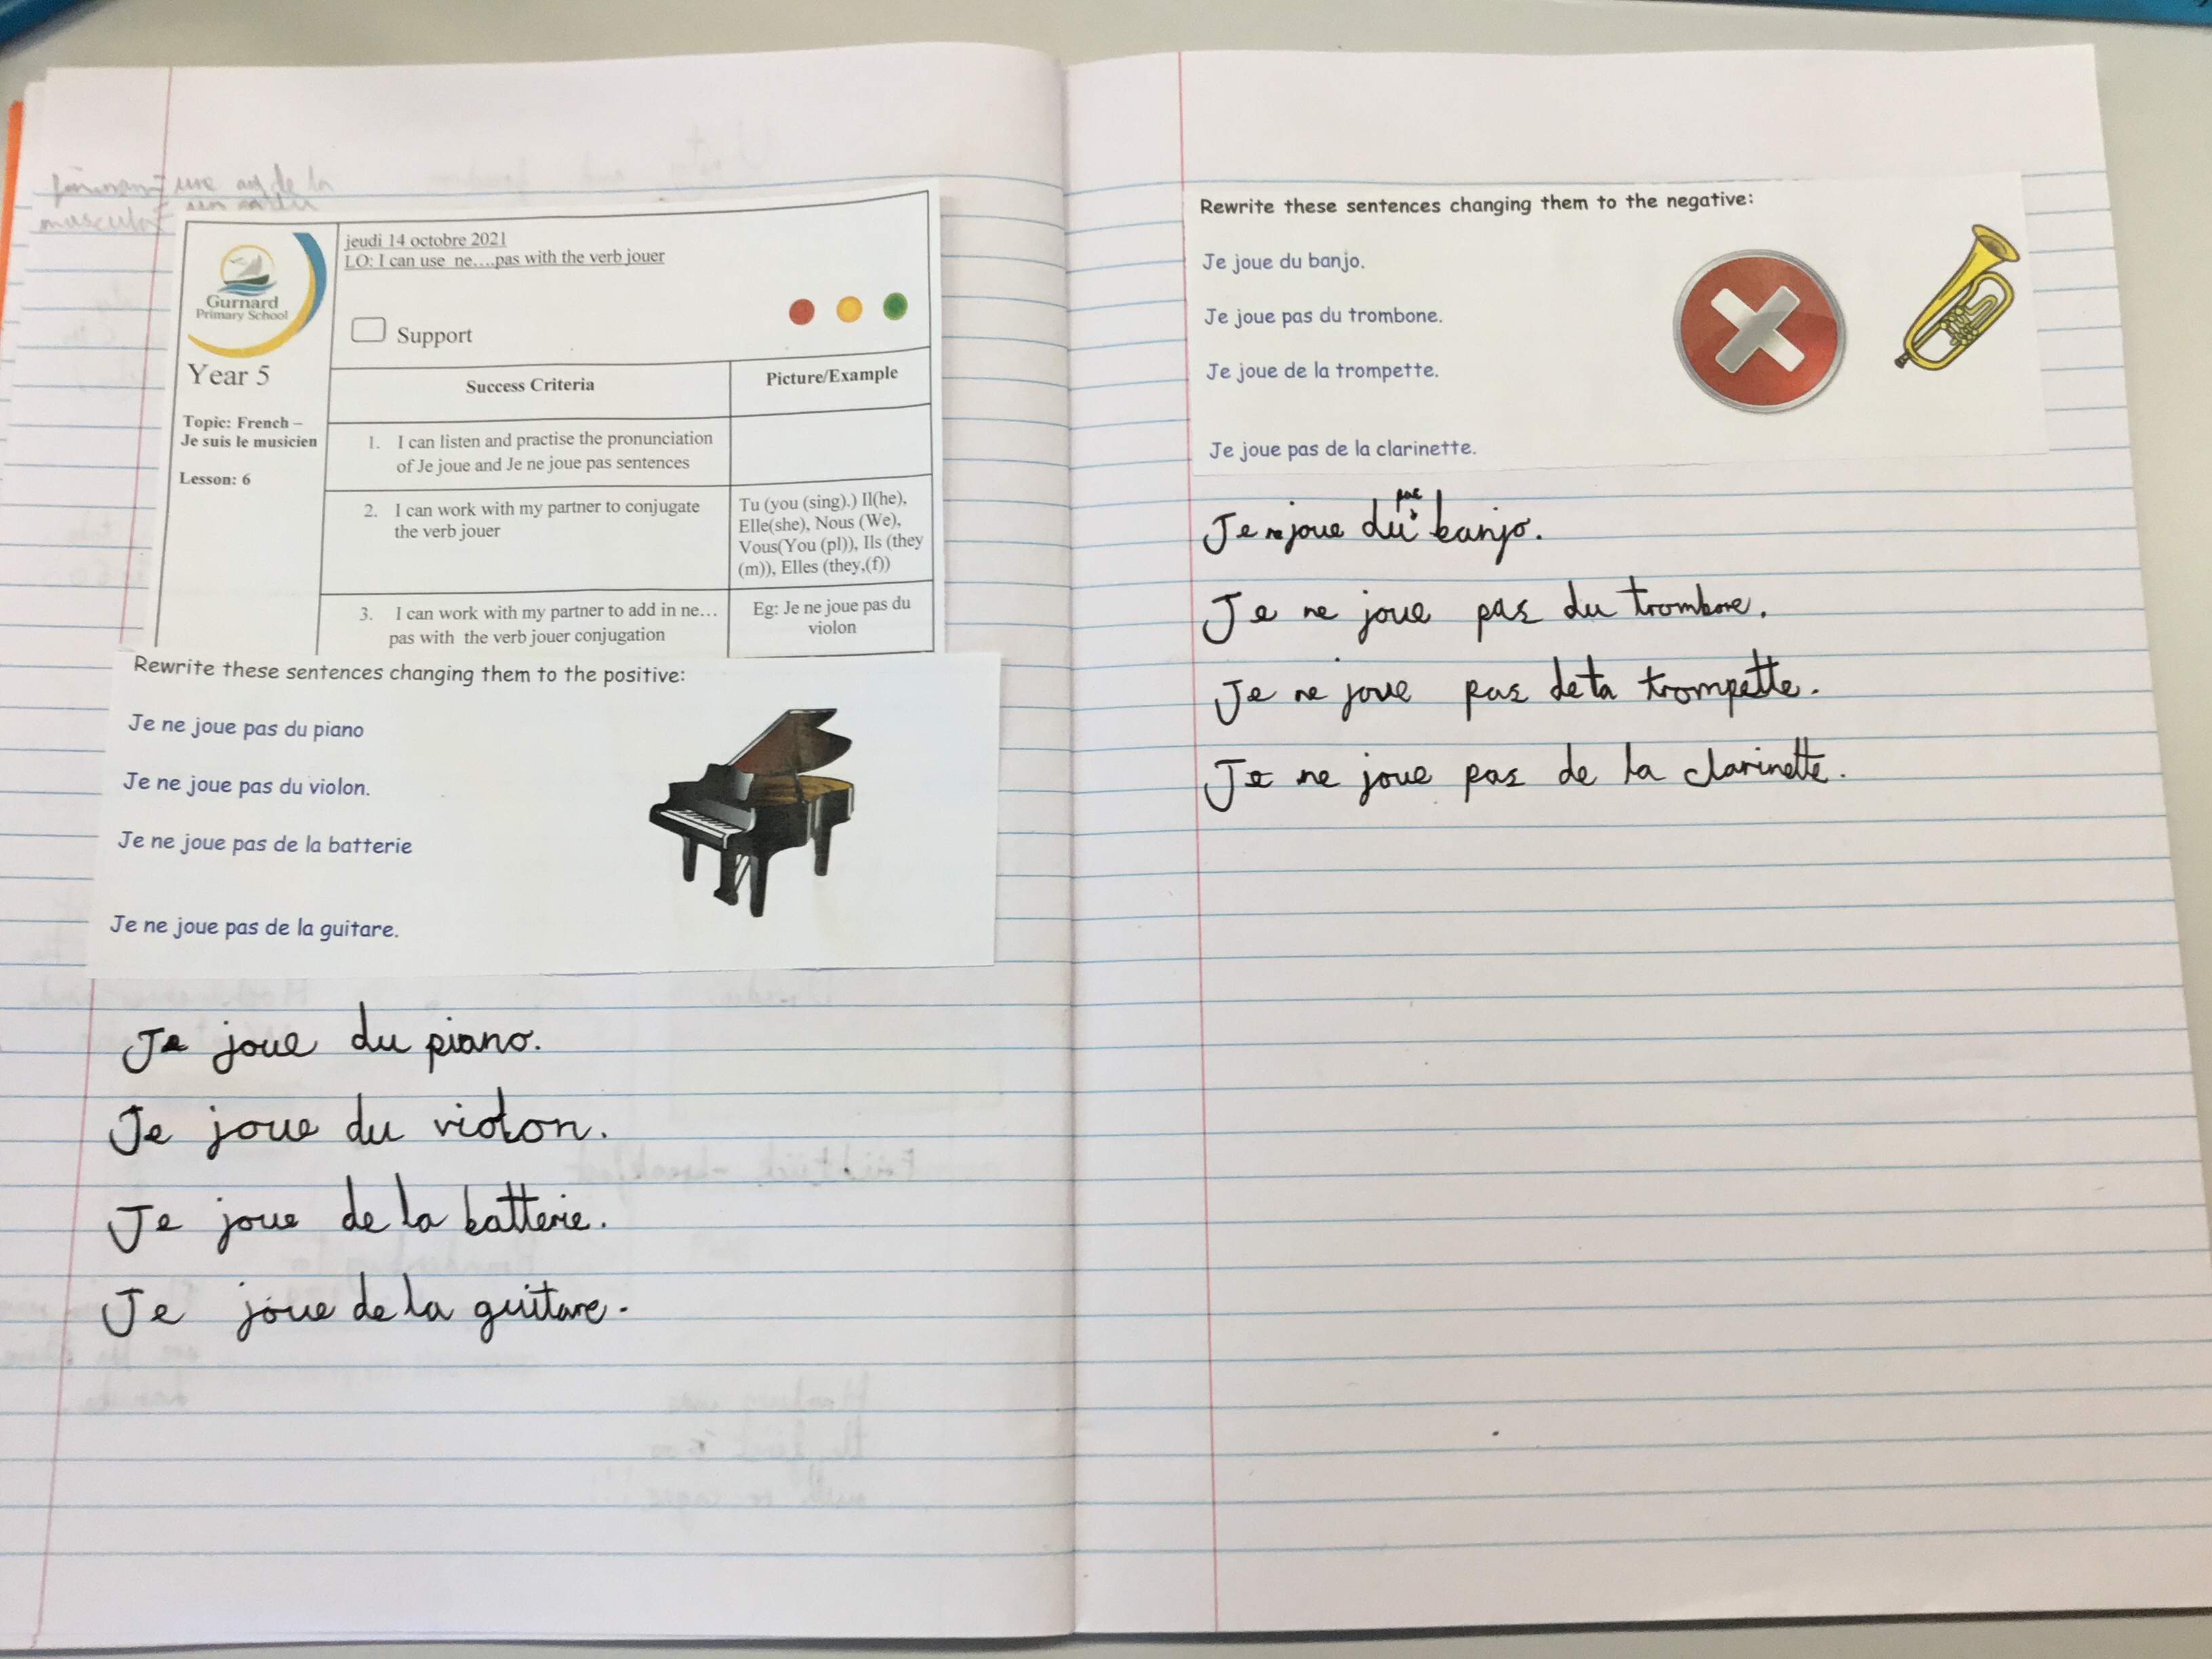 une
jeudi 14 octobre 2021
LO: I can use ne....pas with the verb jouer
Gurnard
Primary School
Support
Year 5
Topic: French –
Je suis le musicien
Lesson: 6
Success Criteria
Picture/Example
1. I can listen and practise the pronunciation
of Je joue and Je ne joue pas sentences
2. I can work with my partner to conjugate
the verb jouer
Tu (you (sing).) Il(he),
Elle(she), Nous (We),
Vous(You (pl)), Ils (they
(m)), Elles (they,(f))
3. I can work with my partner to add in ne…
pas with the verb jouer conjugation
Eg: Je ne joue pas du
violon
Rewrite these sentences changing them to the positive:
Je ne joue pas du piano
Je ne joue pas du violon.
Je ne joue pas de la batterie
Je ne joue pas de la guitare.
Je joue du piano.
Je joue du violon.
Je joue de la batterie.
Je joue de la guitare.
Rewrite these sentences changing them to the negative:
Je joue du banjo.
Je joue pas du trombone.
Je joue de la trompette.
Je joue pas de la clarinette.
pas
Je ne joue du banjo.
Je ne joue pas du trombone.
Je ne joue pas de la trompette.
Je ne joue pas de la clarinette.